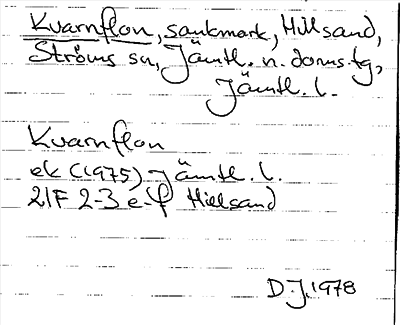 Kvarnflon, sankmark, Hillsand,
Ströms sn, Jämtl. n. doms.tg,
Jämtl. l.
Kvarnflon
ek (1975) Jämtl. l.
21F 2-3 e-f Hillsand
D.J. 1978